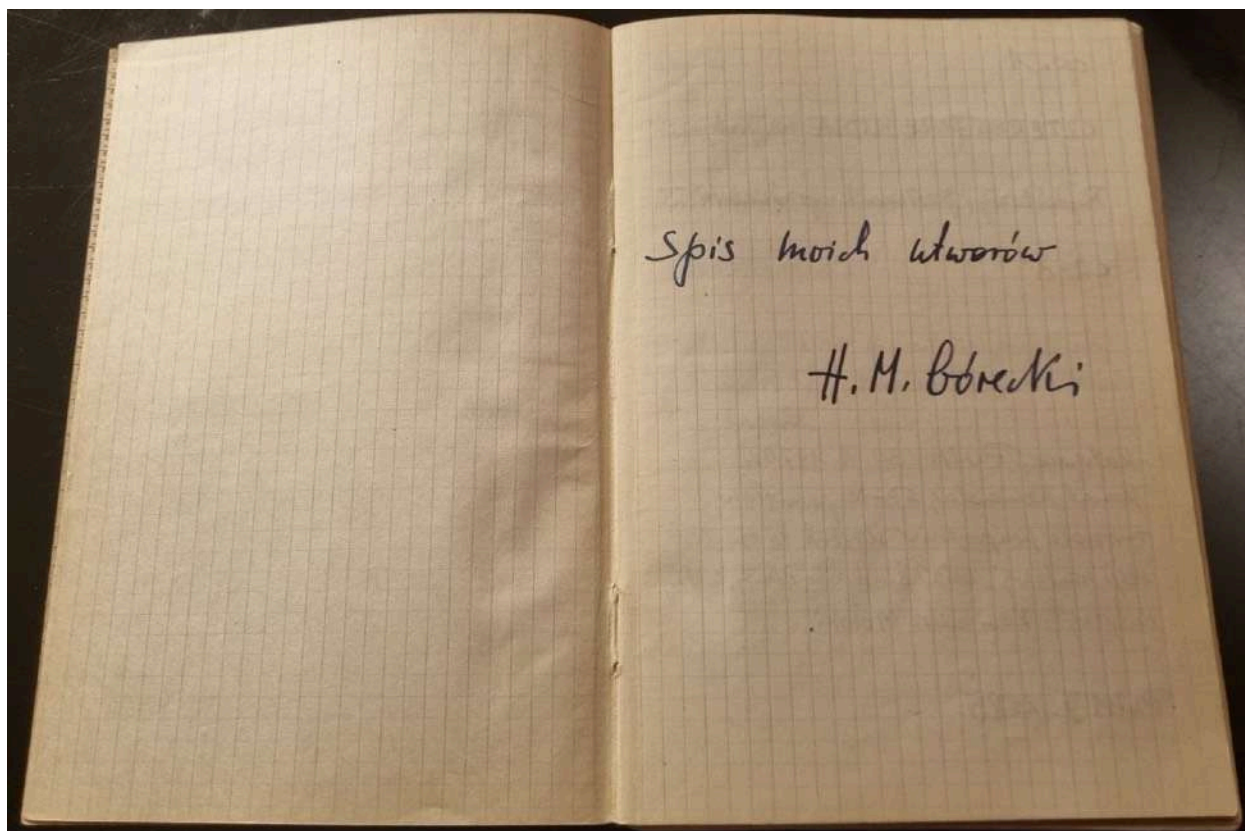 Spis moich utworów
H. M. Górecki